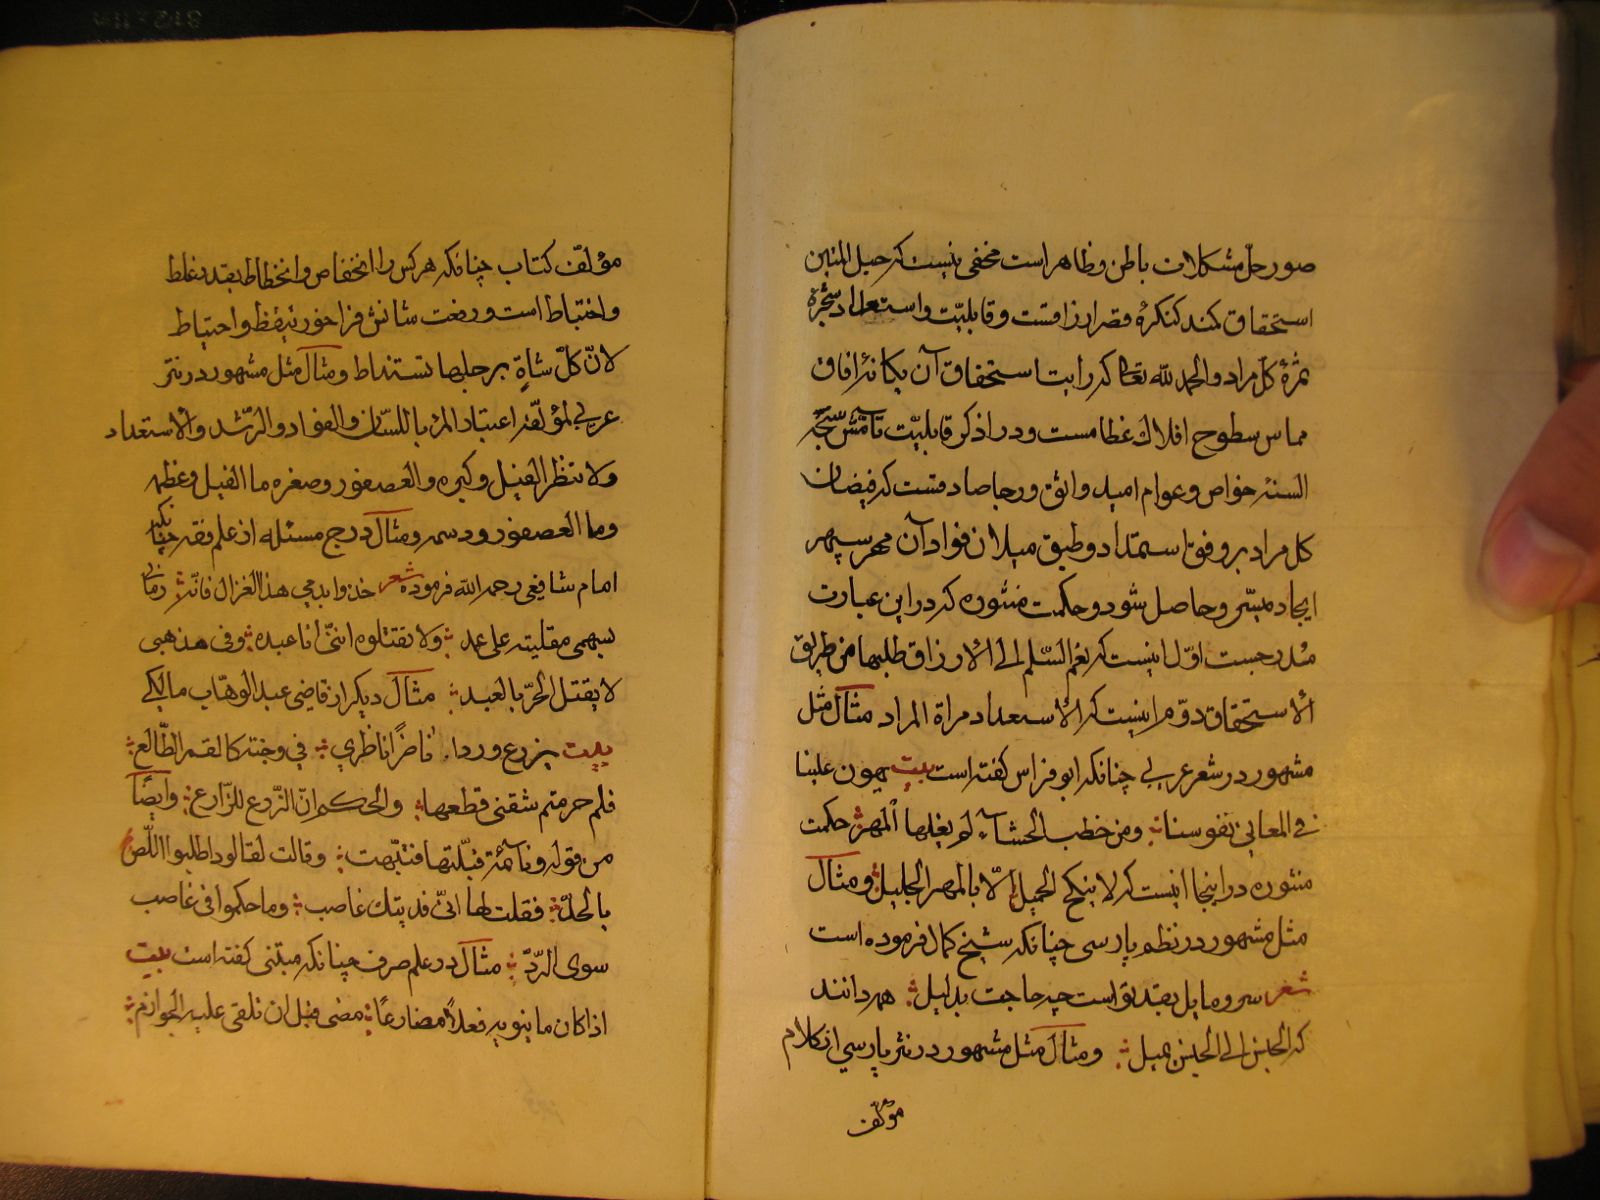 صور حلّ مشکلات باطن و ظاهر است مخفی نیست که حبل المتین
استحقاق کمند کنکرهٔ قصر ارزاقست و قابلیّت و استعداد شجرهٔ
ثمرهٔ کل مراد والحمد لله تعالی که رایت استحقاق آن یکانهٔ افاق
مماس سطوح افلاك عظامست و در اذکر قابلیّت تامّش سبحهٔ
السنهٔ خواص و عوام امید واثق و رجا صادقست که فیضان
کل مراد بر وفق استمداد و طبق میلان فواد آن محور سپهر
ایجاد میسّر و حاصل شود و حکمت منثوره که در این عبارت
مندرجست اوّل اینست که نعم السّلم الی الأرزاق طلبها من طریق
الأستحقاق دوّم اینست که الأستعداد مرآة المراد مثال مثل
مشهور در شعر عربی چنانکه ابو فراس کفته است بیت یهون علینا
فی المعالی نفوسنا ومن خطب الحسناء لم یغلها المهر حکمت
منثوره در اینجا اینست که لا ینکح الجمیل الّا بالمهر الجلیل و مثال
مثل مشهور در نظم پارسی چنانکه شیخ کمال فرموده است
شعر سرو مایل بقد تو است چه حاجت بدلیل همه دانند
که الجنس الی الجنس یمیل و مثال مثل مشهور در نثر پارسی از کلام
مؤلّف
مؤلّف کتاب چنانکه هر کس را انخفاض و انحطاط بقدر غلط
و اختباط است و رفعت شانش فراخور تیقّظ و احتیاط
لانّ کلّ شاةٍ برجلها تستناط و مثال مثل مشهور در نثر
عربی لمؤلّفه اعتبار المرء باللسّان والفواد والرّشد والأستعداد
ولا تنظر الفیل وکبره والعصفور وصغره ما الفیل وعظمه
وما العصفور ودسمه و مثال درج مسئله از علم فقه چنانکه
امام شافعی رحمه الله فرموده شعر خذوا بدمی هذا الغزال فانّه رمانی
بسهمی مقلتیه علی عمد ولا تقتلوه اننّی انا عبده وفی مذهبی
لا یقتل الحرّ بالعبد مثال دیکر از قاضی عبد الوهّاب مالکی
بیت یزرع وردا ناضراً ناظری فی وجنة کالقمر الطّالع
فلم حرمتم شفتی قطعها والحکم انّ الزّرع للزّارع وایضاً
من قوله ونآئمة قبّلتها فتنبّهت وقالت تعالوا واطلبوا اللّص
بالحدّ فقلت لها انّی فدیتك غاصب وما حکموا فی غاصب
سوی الردّ مثال در علم صرف چنانکه متنبّی کفته است بیت
اذا کان ما ینویه فعلاً مضارعاً مضی قبل ان تلقی علیه الجوازم